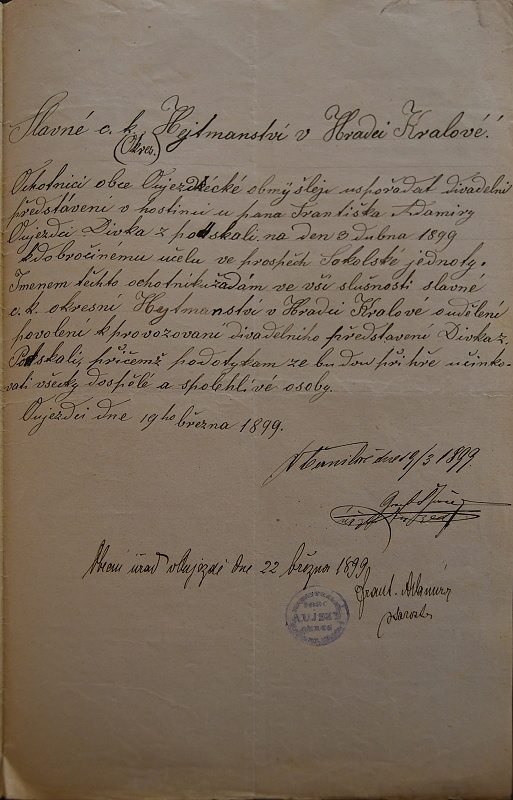 Slavné c. k. Hejtmanství v Hradci Kralové!
(Okres.)
Ochotníci obce Oujezdecké obmýšlejí uspořádat divadelní
představení v hostinci u pana Františka Adamiry
Oujezdci Divka z podskali na den 3 dubna 1899
k dobročinému učelu ve prospěch Sokolské jednoty.
Imenem těchto ochotníku žádám ve vší slušnosti slavné
c. k. okresní Hejtmanství v Hradci Kralové o udělení
povolení k provozovaní divadelního představení Divka z
Podskali, přičemž podotykam ze budou při hře učinko-
vati všecky dospělé a spolehlivé osoby.
Oujezdci dne 19ho března 1899.
dne 19/3 1899.
Obecní úřad v Oujezdě dne 22 března 1899
Frant. Adamíra
starosta
OBEC
AUJEZD